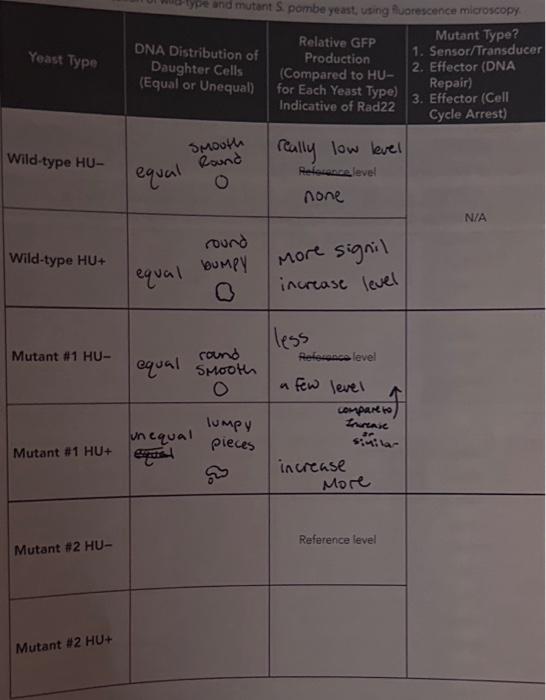 wild-type and mutant S. pombe yeast, using fluorescence microscopy.
Yeast Type
DNA Distribution of
Daughter Cells
(Equal or Unequal)
Relative GFP
Production
(Compared to HU–
for Each Yeast Type)
Indicative of Rad22
Mutant Type?
1. Sensor/Transducer
2. Effector (DNA
Repair)
3. Effector (Cell
Cycle Arrest)
Wild-type HU–
equal
smooth
Round
really low level
Reference level
none
N/A
Wild-type HU+
equal
round
bumpy
More signil
increase level
Mutant #1 HU–
equal
round
smooth
less
Reference level
a few level
Mutant #1 HU+
unequal
equal
lumpy
pieces
compare to
Increase
or
similar
increase
More
Mutant #2 HU–
Reference level
Mutant #2 HU+